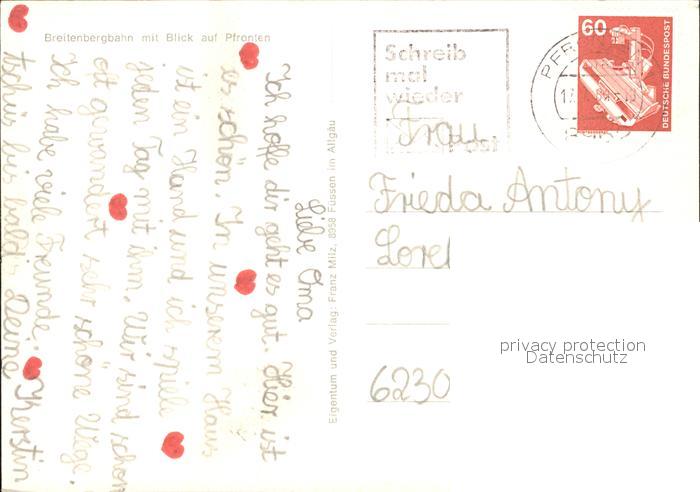 Breitenbergbahn mit Blick auf Pfronten
Liebe Oma
Ich hoffe dir geht es gut. Hier ist
es schön. In unserem Haus
ist ein Hund und ich spiele
jeden Tag mit ihm. Wir sind schon
oft gewandert sehr schöne Wege.
Ich habe viele Freunde.
tschüs bis bald's Deine Kherstin
Eigentum und Verlag: Franz Milz, 8958 Füssen im Allgäu
Schreib
mal
wieder
Post
PFR
60
DEUTSCHE BUNDESPOST
Frau
Frieda Antony
Lorel
6230
privacy protection
Datenschutz